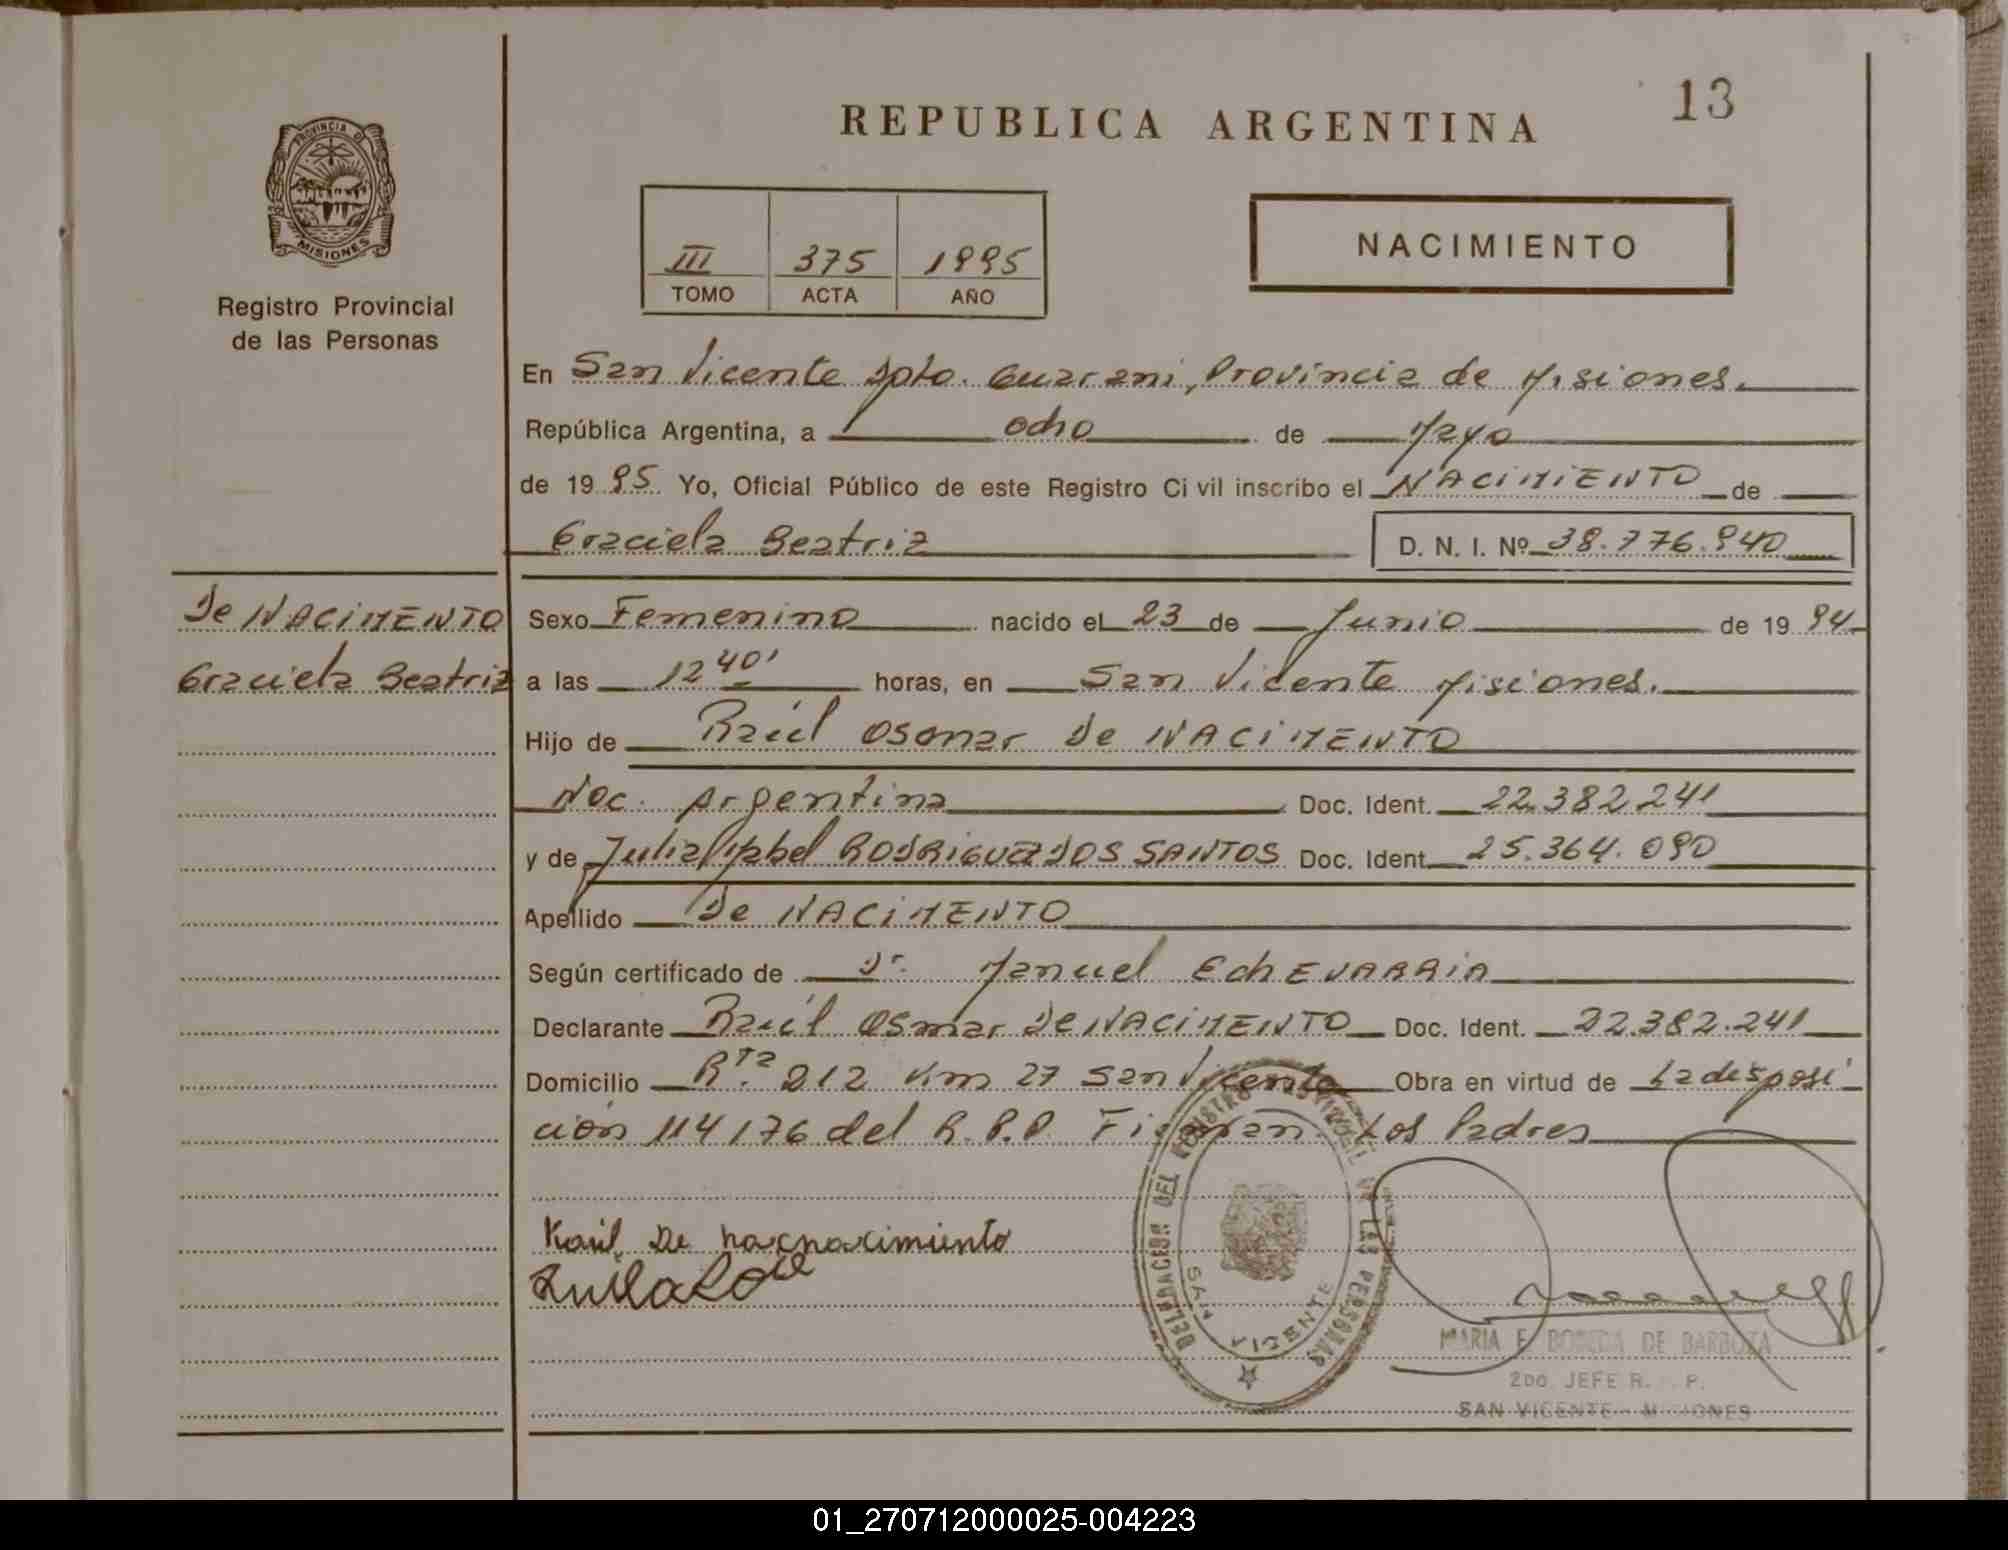 13
REPUBLICA ARGENTINA
PROVINCIA D
MISIONES
Registro Provincial
de las Personas
III 375 1995
TOMO ACTA AÑO
NACIMIENTO
En San Vicente Dpto. Guarani, Provincia de Misiones.
República Argentina, a ocho de Mayo
de 19 95. Yo, Oficial Público de este Registro Ci vil inscribo el NACIMIENTO de
Graciela Beatriz D. N. I. Nº 38.776.940
De NACIMENTO
Graciela Beatriz
Sexo Femenino nacido el 23 de Junio de 19 94
a las 12 40' horas, en San Vicente Misiones.
Hijo de Raúl Osmar De NACIMENTO
Nac. Argentina Doc. Ident. 22.382.241
y de Julia Mabel RODRIGUEZ DOS SANTOS Doc. Ident. 25.364.090
Apellido De NACIMENTO
Según certificado de Dr. Manuel EchEVARRIA
Declarante Raúl Osmar De NACIMENTO Doc. Ident. 22.382.241
Domicilio Rta. 212 Km 27 San Vicente Obra en virtud de La disposi
ción 114/76 del R.P.P. Firman. Los Padres
Raúl De nacnacimiento
DELEGACION DEL REGISTRO DE LAS PERSONAS
SAN VICENTE
MARIA E. DE BARBOZA
2DO. JEFE R. P.
SAN VICENTE - MISIONES
01_270712000025-004223